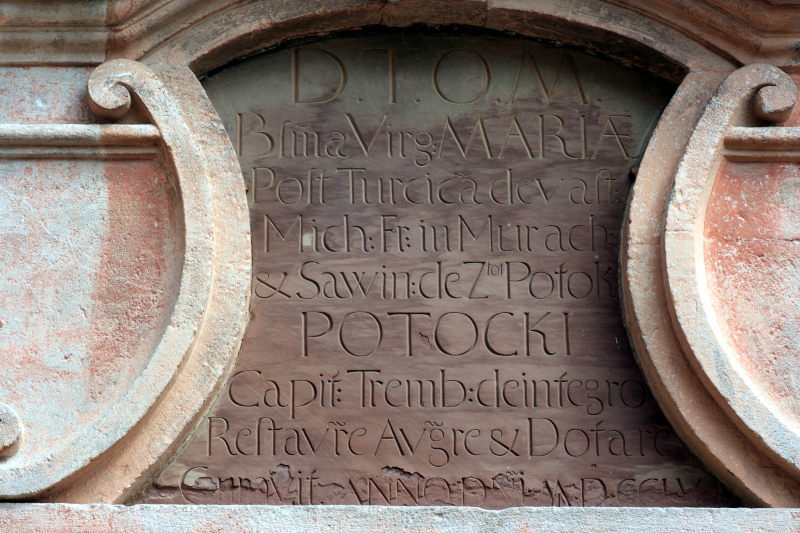 D.T.O.M.
Bſm̃a Virg MARIÆ
Poſt Turcicã devaſt:
Mich: Fr: in Murach:
& Sawin: de Ztoł Potok
POTOCKI
Capit: Tremb: deintegro
Reſtaur̃e Aug̃re & Dotare
Curavit ANNO DÑI